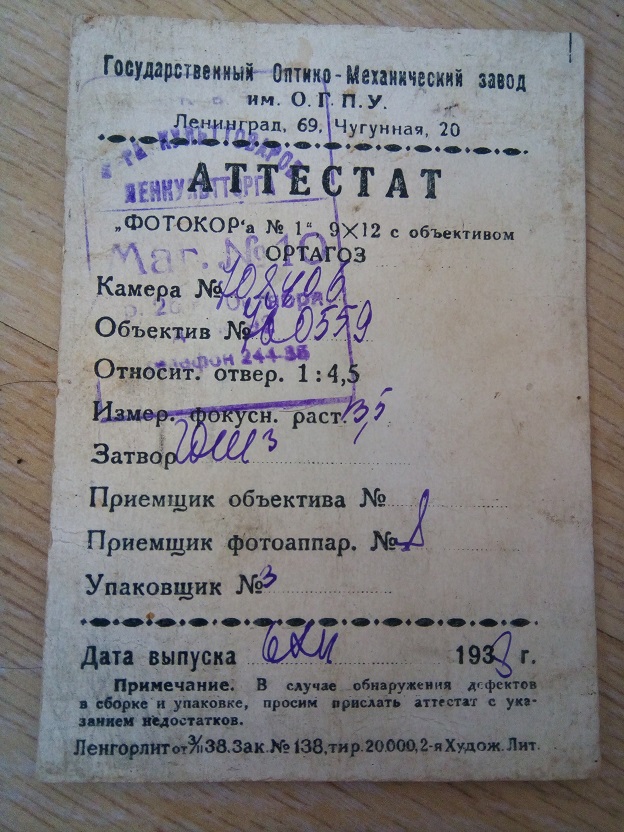 Государственный Оптико-Механический завод
им. О.Г.П.У.
Ленинград, 69, Чугунная, 20
КУЛЬТТОВАРОВ
ЛЕНКУЛЬТТОРГ
АТТЕСТАТ
„ФОТОКОР'а № 1" 9X12 с объективом
ОРТАГОЗ
Маг. № 10
Камера №
Объектив № 0559
телефон 244-35
Относит. отвер. 1:4,5
Измер. фокусн. раст. 13,5
Затвор ГОМЗ
Приемщик объектива №
Приемщик фотоаппар. № 8
Упаковщик № 3
Дата выпуска 6 XII 1938 г.
Примечание. В случае обнаружения дефектов
в сборке и упаковке, просим прислать аттестат с ука-
занием недостатков.
Ленгорлит от 3/II 38. Зак. № 138, тир. 20.000, 2-я Худож. Лит.